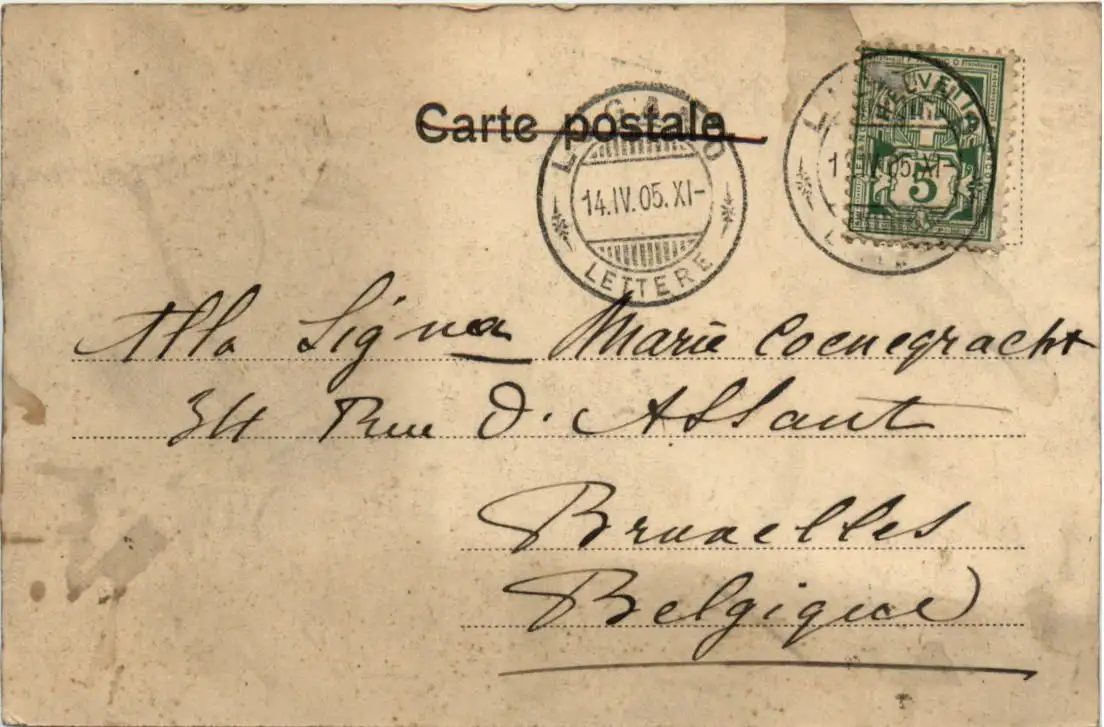 Carte postale
LUGANO
14.IV.05.XI-
LETTERE
HELVETIA
5
14.IV.05.XI-
Alla Signa Marie Coenegracht
34 Rue d'Assaut
Bruxelles
Belgique